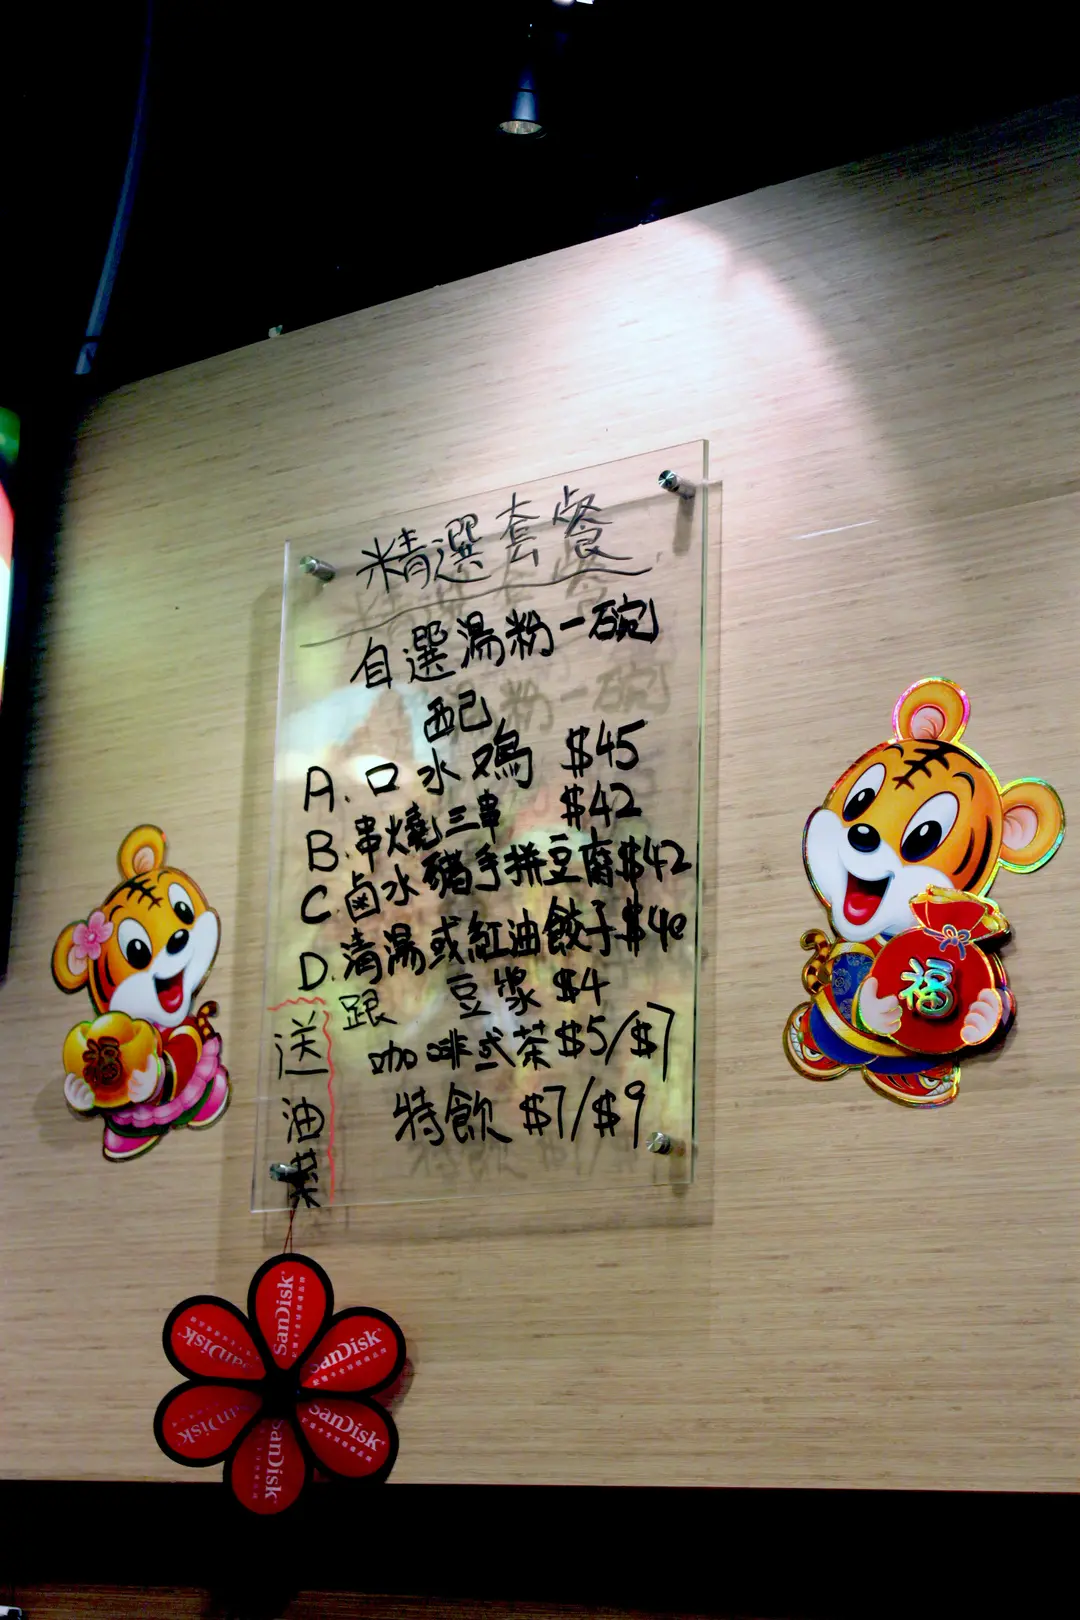 精選套餐
自選湯粉一碗
配
A.口水鸡 $45
B.串燒三串 $42
C.鹵水豬手拼豆腐$42
D.清湯或紅油餃子$40
跟 豆漿 $4
咖啡或茶$5/$7
特飲 $7/$9
送油菜
福
福
SanDisk
SanDisk
SanDisk
SanDisk
SanDisk
SanDisk